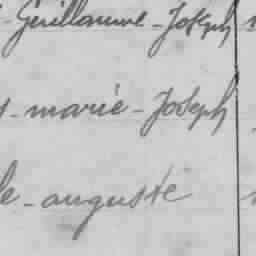 Guillaume-Joseph
marie-Joseph
auguste